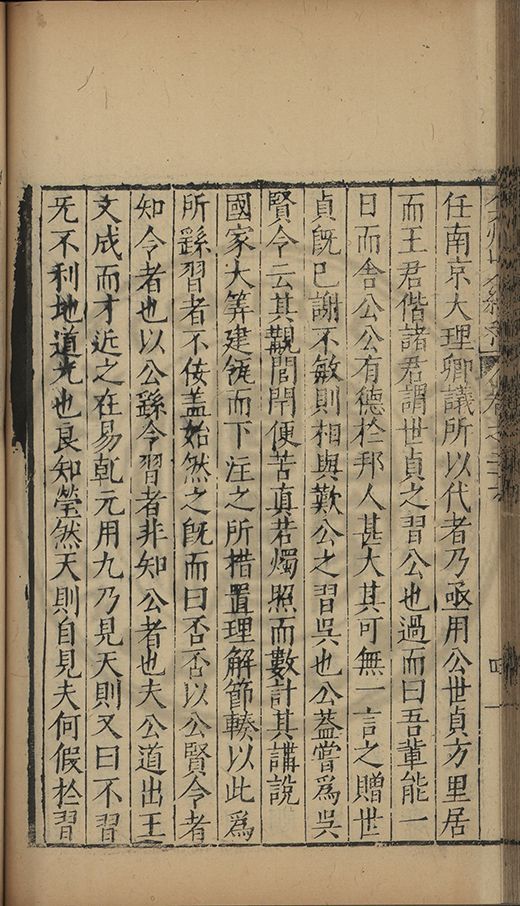 任南京大理卿議所以代者乃亟用公世貞方里居
而王君偕諸君謂世貞之習公也過而曰吾輩能一
日而舍公公有德於邦人甚大其可無一言之贈世
貞旣已謝不敏則相與歎公之習吳也公葢嘗爲吳
賢令云其覩閭閈便苦真若燭照而數計其講說
國家大筭建瓴而下注之所措置理解節轃以此爲
所繇習者不佞盖始然之旣而曰否否以公賢令者
知令者也以公繇令習者非知公者也夫公道出王
文成而才近之在易乾元用九乃見天則又曰不習
无不利地道光也良知瑩然天則自見夫何假於習